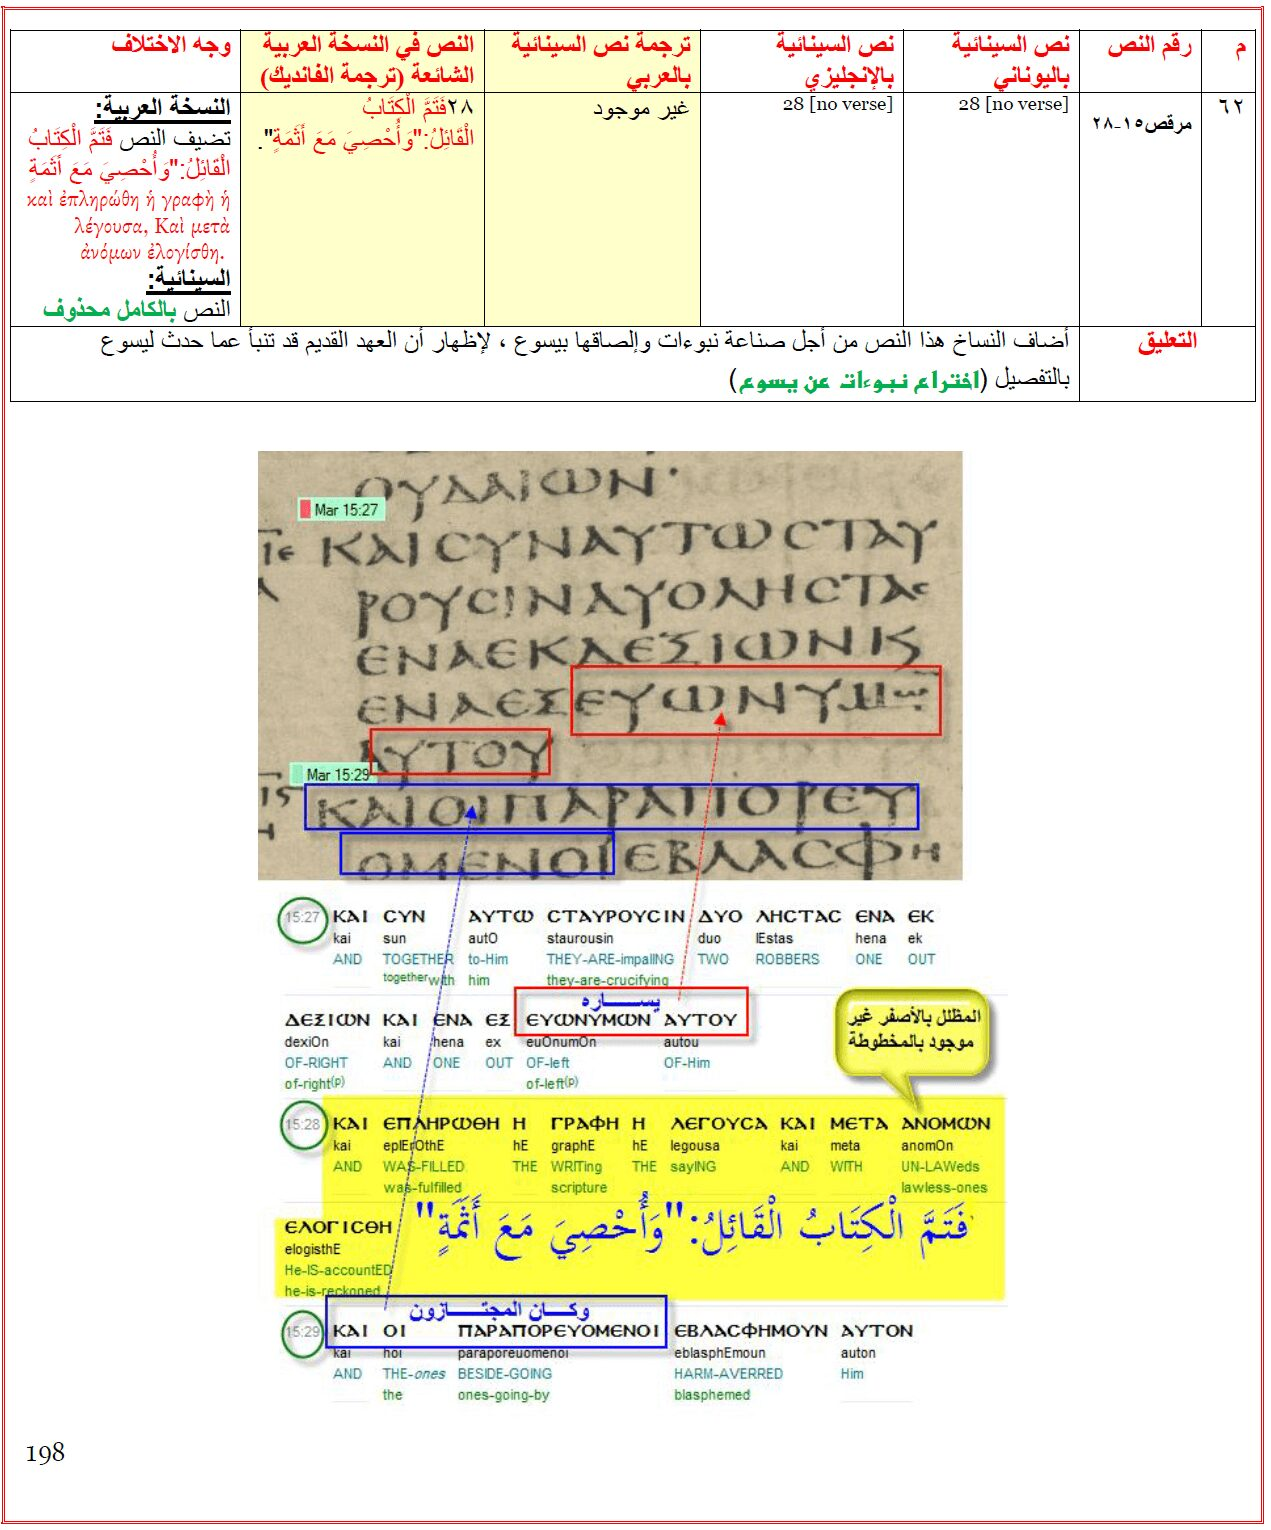 م
رقم النص
نص السينائية
باليوناني
نص السينائية
بالإنجليزي
ترجمة نص السينائية
بالعربي
النص في النسخة العربية
الشائعة (ترجمة الفانديك)
وجه الاختلاف
٦٢
مرقص١٥-٢٨
28 [no verse]
28 [no verse]
غير موجود
٢٨فَتَمَّ الْكِتَابُ
الْقَائِلُ:"وَأُحْصِيَ مَعَ أَثَمَةٍ".
النسخة العربية:
تضيف النص فَتَمَّ الْكِتَابُ
الْقَائِلُ:"وَأُحْصِيَ مَعَ أَثَمَةٍ
καὶ ἐπληρώθη ἡ γραφὴ ἡ
λέγουσα, Καὶ μετὰ
ἀνόμων ἐλογίσθη.
السينائية:
النص بالكامل محذوف
التعليق
أضاف النساخ هذا النص من أجل صناعة نبوءات وإلصاقها بيسوع ، لإظهار أن العهد القديم قد تنبأ عما حدث ليسوع
بالتفصيل (اختراع نبوءات عن يسوع)
ΟΥΔΑΙΩΝ·
Mar 15:27
ΚΑΙϹΥΝΑΥΤΩϹΤΑΥ
ΡΟΥϹΙΝΔΥΟΛΗϹΤΑϲ
ΕΝΑΕΚΔΕΞΙΩΝΚ
ΕΝΑΕΞΕΥΩΝΥΜ
ΑΥΤΟΥ
Mar 15:29
ΚΑΙΟΙΠΑΡΑΠΟΡΕΥ
ΟΜΕΝΟΙΕΒΛΑϹΦΗ
15:27 ΚΑΙ ϹΥΝ ΑΥΤΩ ϹΤΑΥΡΟΥϹΙΝ ΔΥΟ ΛΗϹΤΑϹ ΕΝΑ ΕΚ
kai sun autO staurousin duo lEstas hena ek
AND TOGETHER to-Him THEY-ARE-impalING TWO ROBBERS ONE OUT
together with him they-are-crucifying
يســـــاره
ΔΕΞΙΩΝ ΚΑΙ ΕΝΑ ΕΞ ΕΥΩΝΥΜΩΝ ΑΥΤΟΥ
dexiOn kai hena ex euOnumOn autou
OF-RIGHT AND ONE OUT OF-left OF-Him
of-right(p) of-left(p)
المظلل بالأصفر غير
موجود بالمخطوطة
15:28 ΚΑΙ ΕΠΛΗΡΩΘΗ Η ΓΡΑΦΗ Η ΛΕΓΟΥϹΑ ΚΑΙ ΜΕΤΑ ΑΝΟΜΩΝ
kai eplErOthE hE graphE hE legousa kai meta anomOn
AND WAS-FILLED THE WRITing THE sayING AND WITH UN-LAWeds
was-fulfilled scripture lawless-ones
فَتَمَّ الْكِتَابُ الْقَائِلُ:"وَأُحْصِيَ مَعَ أَثَمَةٍ"
ΕΛΟΓΙϹΘΗ
elogisthE
He-IS-accountED
he-is-reckoned
وكـــان المجتـــــازون
15:29 ΚΑΙ ΟΙ ΠΑΡΑΠΟΡΕΥΟΜΕΝΟΙ ΕΒΛΑϹΦΗΜΟΥΝ ΑΥΤΟΝ
kai hoi paraporeuomenoi eblasphEmoun auton
AND THE-ones BESIDE-GOING HARM-AVERRED Him
the ones-going-by blasphemed
198